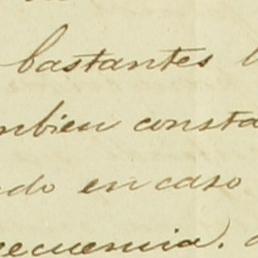 bastantes
mbien consta
do en caso
ecuencia.